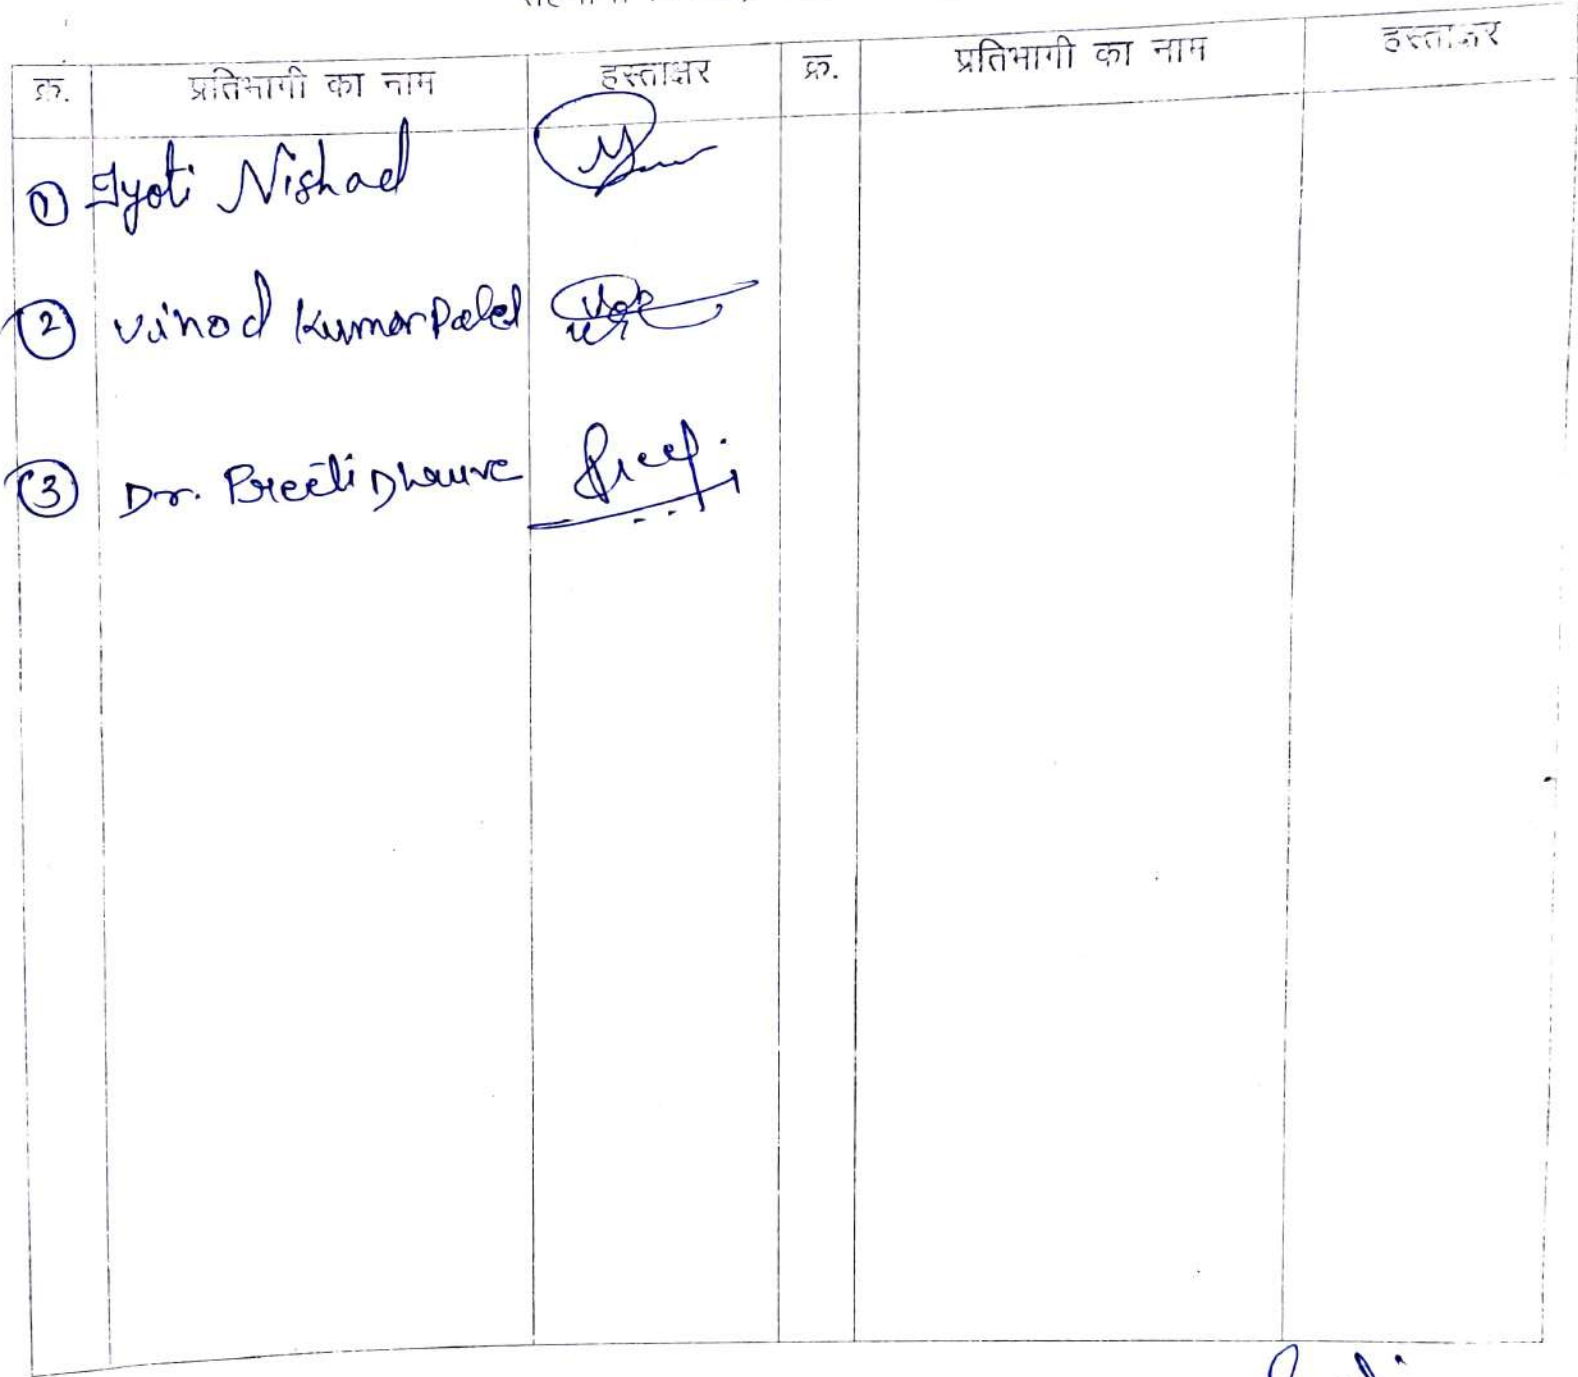 क्र. प्रतिभागी का नाम हस्ताक्षर क्र. प्रतिभागी का नाम हस्ताक्षर
① Jyoti Nishad
② Vinod Kumar Patel
③ Dr. Preeti Dhurve